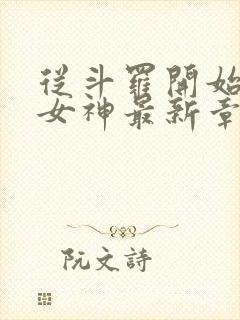 從斗羅開始
女神最新章
阮文詩